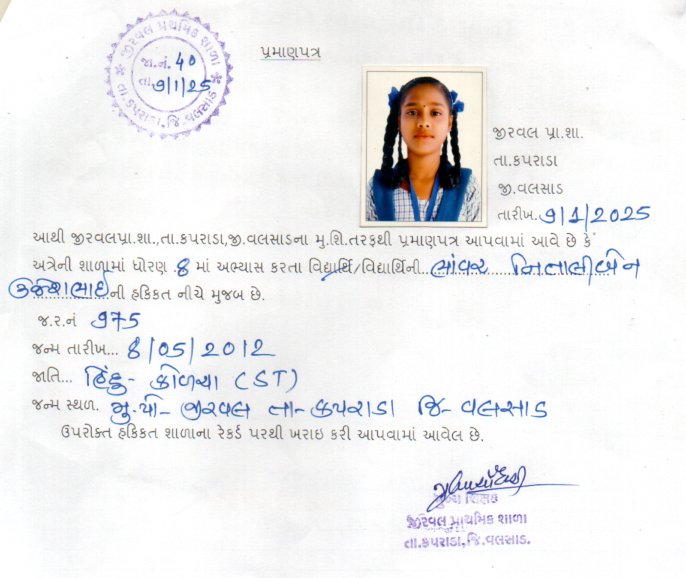 જીરવલ પ્રાથમિક શાળા
જા.નં. 40
તા. 9/1/25
તા.કપરાડા, જિ.વલસાડ
પ્રમાણપત્ર
જીરવલ પ્રા.શા.
તા.કપરાડા
જી.વલસાડ
તારીખ. 9/1/2025
આથી જીરવલપ્રા.શા.,તા.કપરાડા,જી.વલસાડના મુ.શિ.તરફથી પ્રમાણપત્ર આપવામાં આવે છે કે
અત્રેની શાળામાં ધોરણ 8 માં અભ્યાસ કરતા વિદ્યાર્થિ/વિદ્યાર્થિની.. ભાંવર
ની હકિકત નીચે મુજબ છે.
જ.ર.નં 975
જન્મ તારીખ... 8/05/2012
જાતિ... હિંદુ- કોળચા (ST)
જન્મ સ્થળ. મુ.પો- જીરવલ તા- કપરાડા જિ- વલસાડ
ઉપરોક્ત હકિકત શાળાના રેકર્ડ પરથી ખરાઇ કરી આપવામાં આવેલ છે.
મુખ્ય શિક્ષક
જીરવલ પ્રાથમિક શાળા
તા.કપરાડા,જિ.વલસાડ.